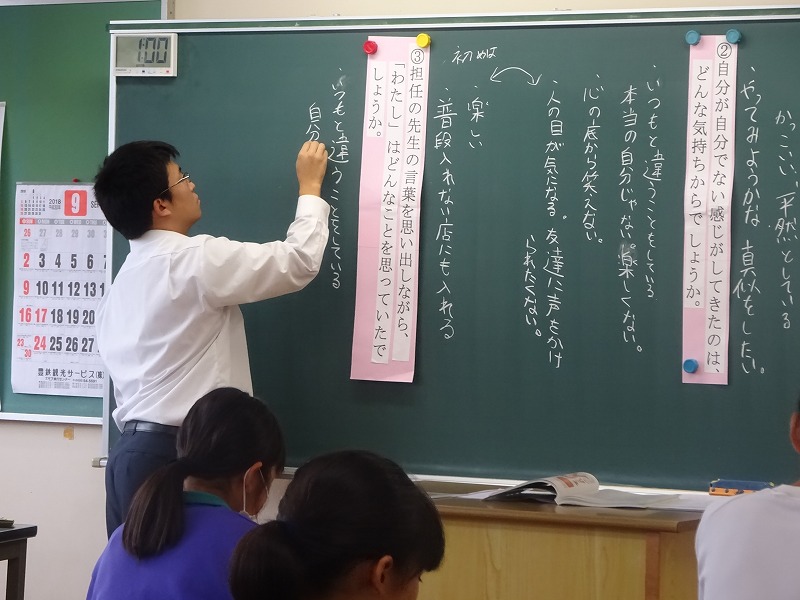 かっこいい、平然としている
やってみようかな 真似をしたい。
②自分が自分でない感じがしてきたのは、
どんな気持ちからでしょうか。
・いつもと違うこともしている
本当の自分じゃない。楽しくない。
・心の底から笑えない。
・人の目が気になる。友達に声をかけ
られたくない。
初めは
・楽しい
・普段入れない店にも入れる
③担任の先生の言葉を思い出しながら、
「わたし」はどんなことを思っていたで
しょうか。
・いつもと違うことをしている
自分
1:00
2018
9
SE
26
2 3 4 5 6 7
9 10 11 12 13
16 17 18 19 20
23 24 25 26 27
30
豊鉄観光サービス(株)